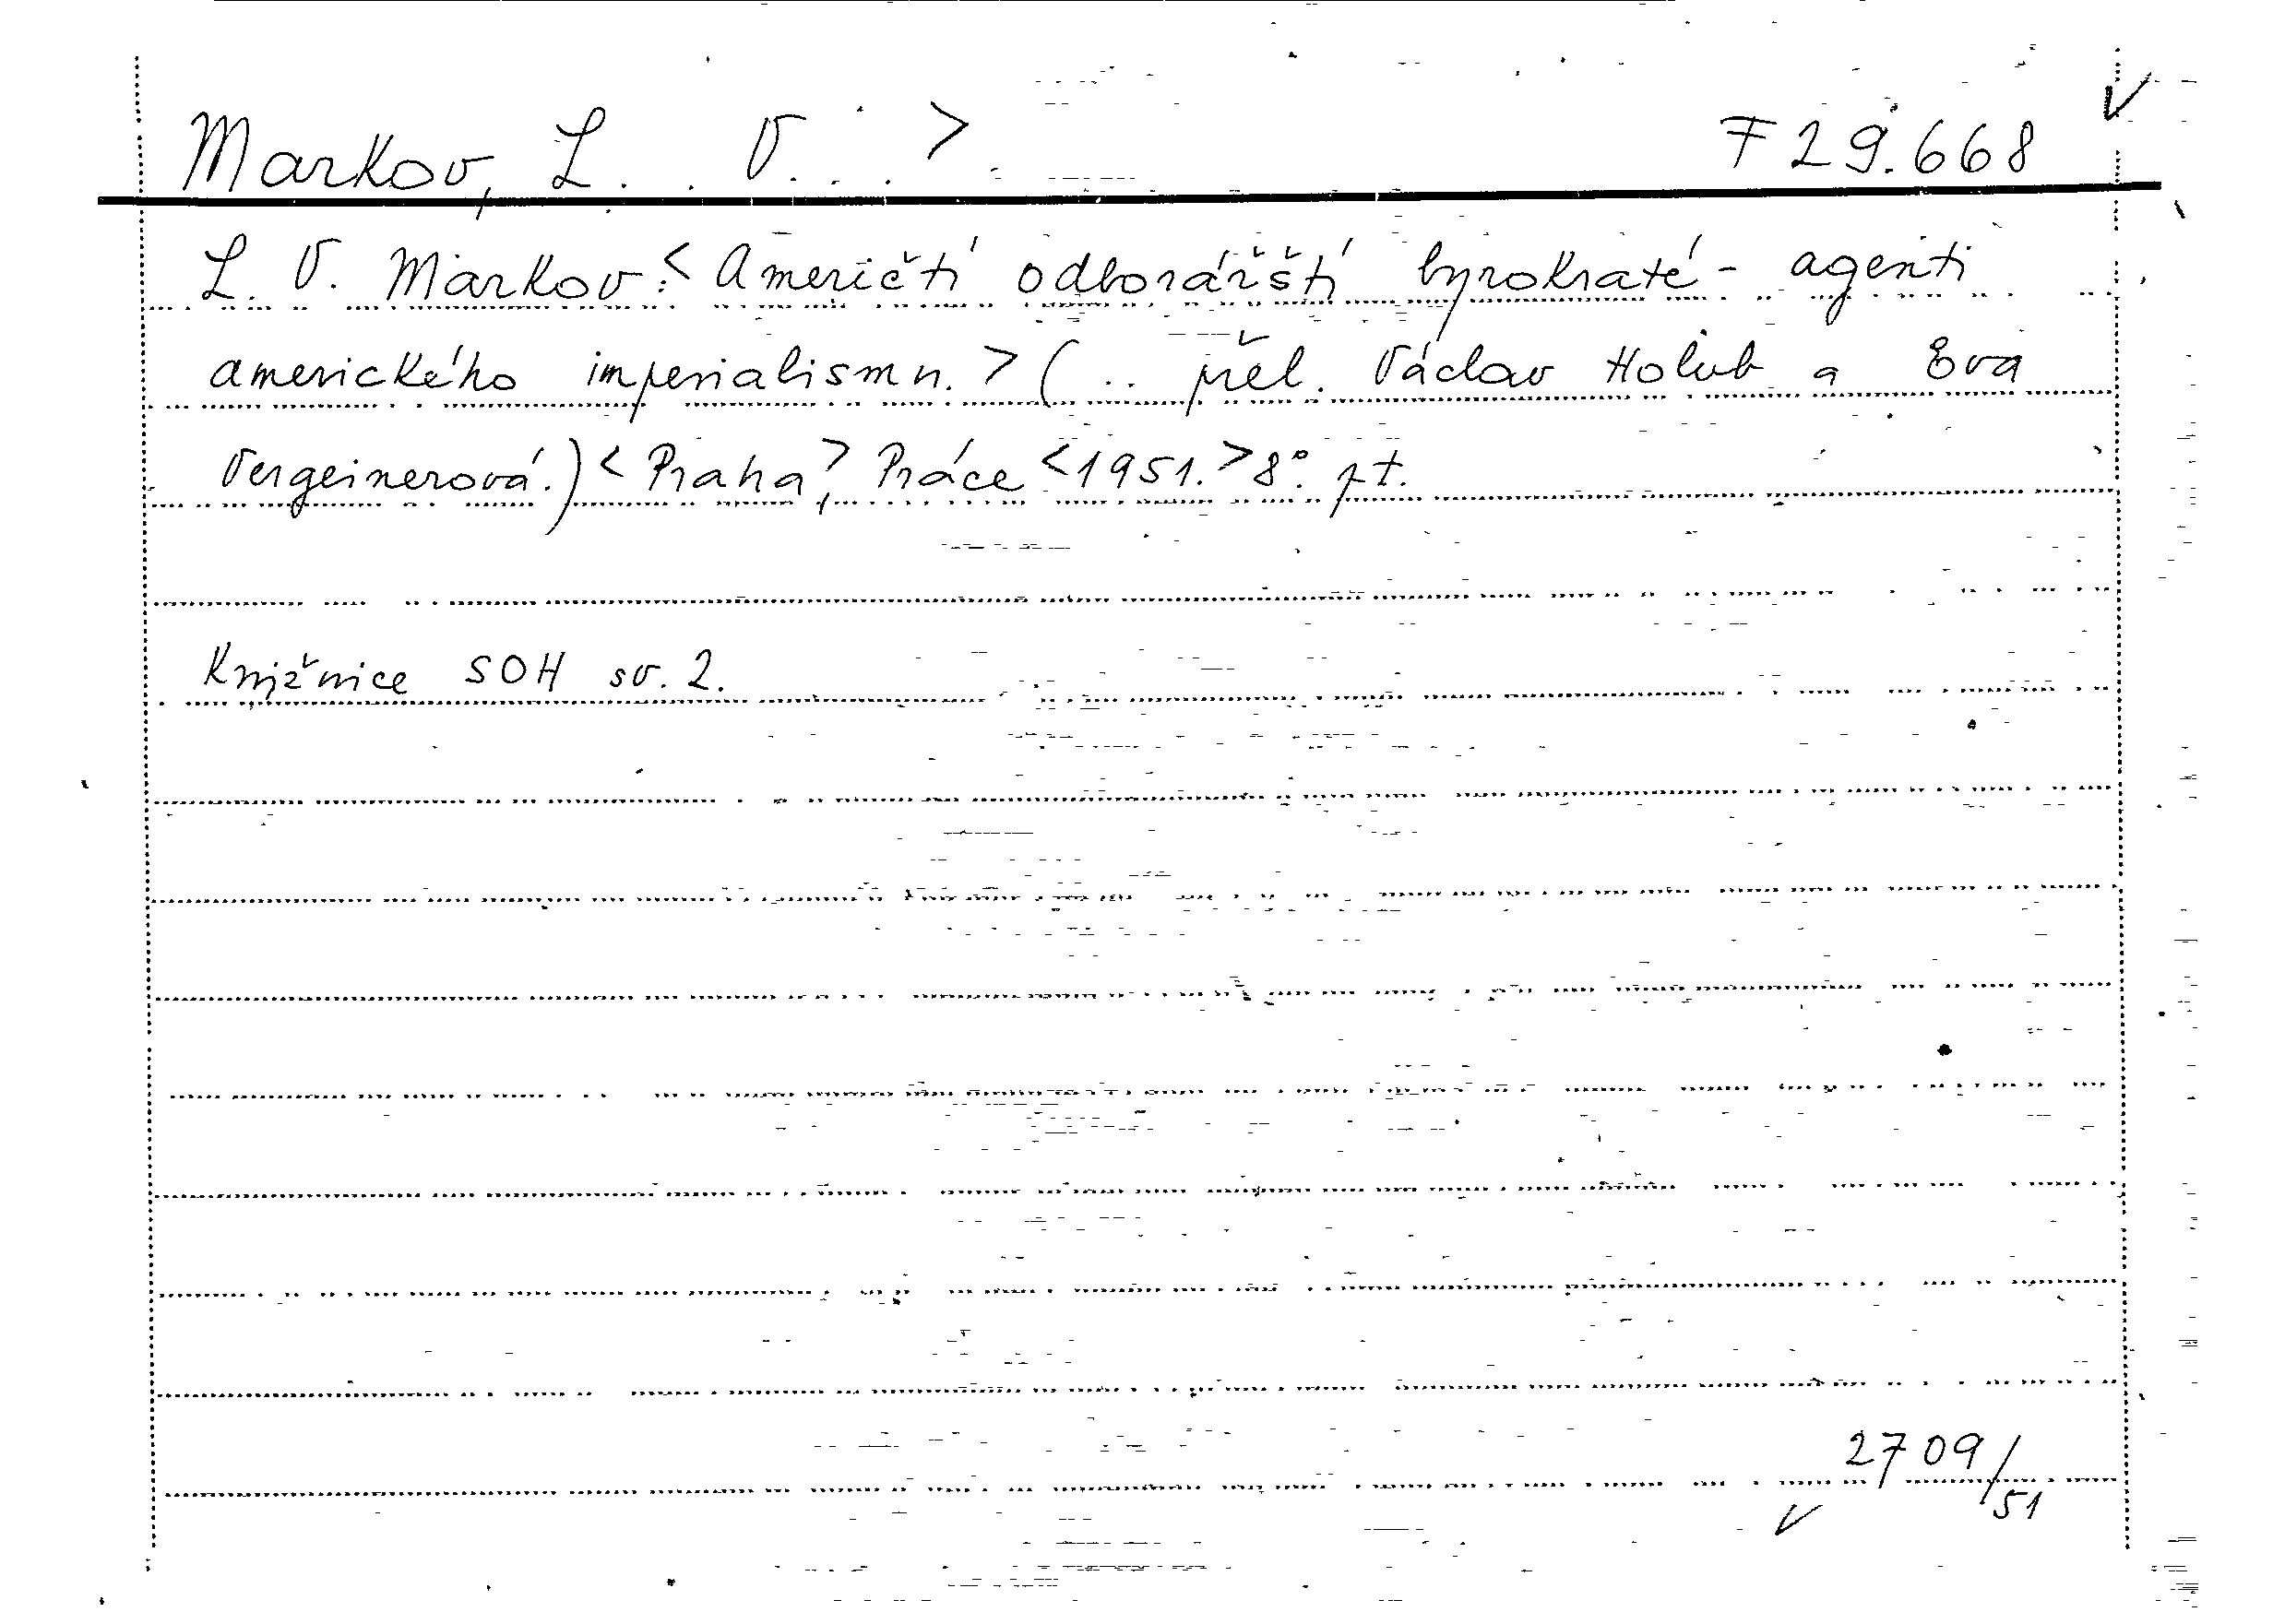 Markov, L. . V. . . > F 29.668
L. V. Markov: < Američtí odborářští byrokraté - agenti
amerického imperialismu. > ( .. přel. Václav Holub a Eva
Vergeinerová.) < Praha, > Práce < 1951. > 8°. pt.
Knižnice SOH sv. 2.
2709/51